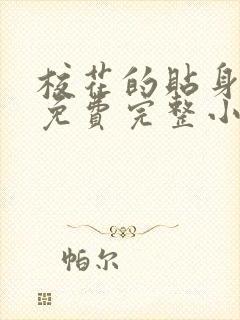 校花的贴身
免费完整小
帕尔